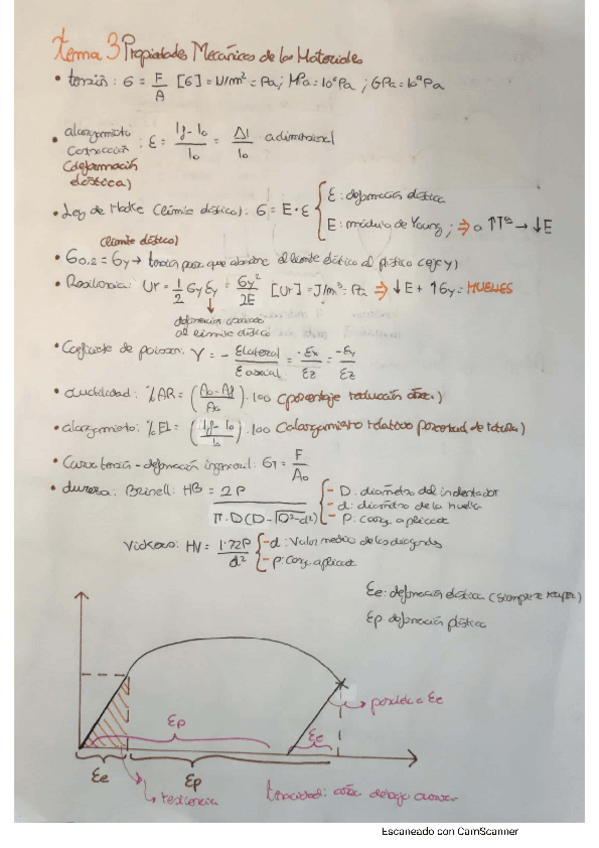 Tema 3 Propiedades Mecánicas de los Materiales
• tensión: σ = F/A [σ] = N/m² = Pa; MPa = 10⁶ Pa; GPa = 10⁹ Pa
• alargamiento
contracción : ε = (lf - l0)/l0 = Δl/l0 adimensional
(deformación
elástica)
• Ley de Hooke (límite elástico): σ = E·ε { ε: deformación elástica
E: módulo de Young; ⇒ a ↑Tª → ↓E
(límite elástico)
• σ0,2 = σy → tensión para que abandone el límite elástico al plástico (eje y)
• Resiliencia: Ur = 1/2 σy εy = σy²/2E [Ur] = J/m³ = Pa ⇒ ↓E + ↑σy = MUELLES
deformación
al límite elástico
• Coeficiente de poisson: γ = - εlateral/εaxial = -εx/εz = -εy/εz
• ductilidad: %AR = ((A0 - Af)/A0) · 100 (porcentaje reducción área)
• alargamiento: %EL = ((lf - l0)/l0) · 100 (alargamiento relativo porcentual de rotura)
• Curva tensión - deformación ingenieril: σT = F/A0
• dureza: Brinell: HB = 2P/(π·D(D-√D²-d²)) { - D: diámetro del indentador
- d: diámetro de la huella
- P: carga aplicada
Vickers: HV = 1.72P/d² { - d: Valor medio de las diagonales
- P: carga aplicada
εe: deformación elástica (siempre se recupera)
εp deformación plástica
paralela a εe
εp
εe
εe
εp
resiliencia
tenacidad: área debajo curva
Escaneado con CamScanner